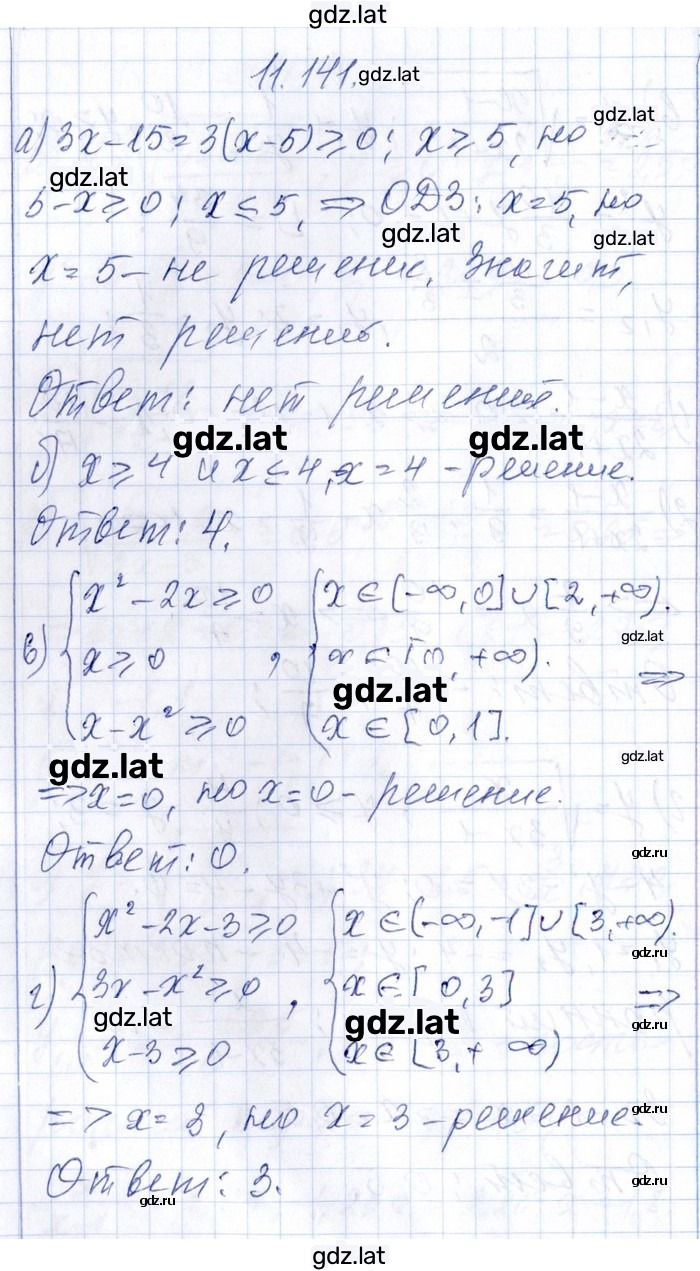 gdz.lat
11.141. gdz.lat
а) 3x-15=3(x-5)⩾0; x⩾5, но gdz.lat
gdz.lat
5-x⩾0; x≤5, ⇒ ОДЗ: x=5, но
gdz.lat gdz.lat
x=5 - не решение. Значит,
нет решений.
Ответ: нет решений.
gdz.lat gdz.lat
б) x⩾4 и x≤4, x=4 - решение.
Ответ: 4.
в) { x²-2x⩾0 { x∈(-∞,0]∪[2,+∞).
gdz.lat
x⩾0 , x∈[0,+∞). ⇒
gdz.lat
x-x²⩾0 x∈[0,1].
gdz.lat gdz.lat
⇒ x=0, но x=0 - решение.
Ответ: 0. gdz.ru
г) { x²-2x-3⩾0 { x∈(-∞,-1]∪[3,+∞).
gdz.ru
3x-x²⩾0 , x∈[0,3] ⇒
gdz.lat gdz.lat gdz.ru
x-3⩾0 x∈[3,+∞)
⇒ x=3, но x=3 - решение. gdz.ru
Ответ: 3. gdz.ru
gdz.ru
gdz.lat